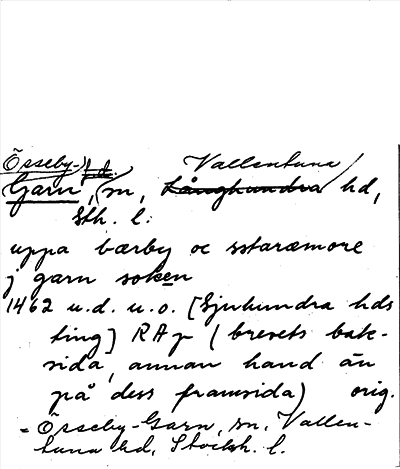 Össeby- Vallentuna
Garn, sn, Långhundra hd,
Sth. l.
uppa bærby oc sstaræmore
j garn soken
1462 u.d. u.o. [Sjuhundra hds
ting] RAp (brevets bak-
sida, annan hand än
på dess framsida) orig.
= Össeby-Garn, sn, Vallen-
tuna hd, Stockh. l.